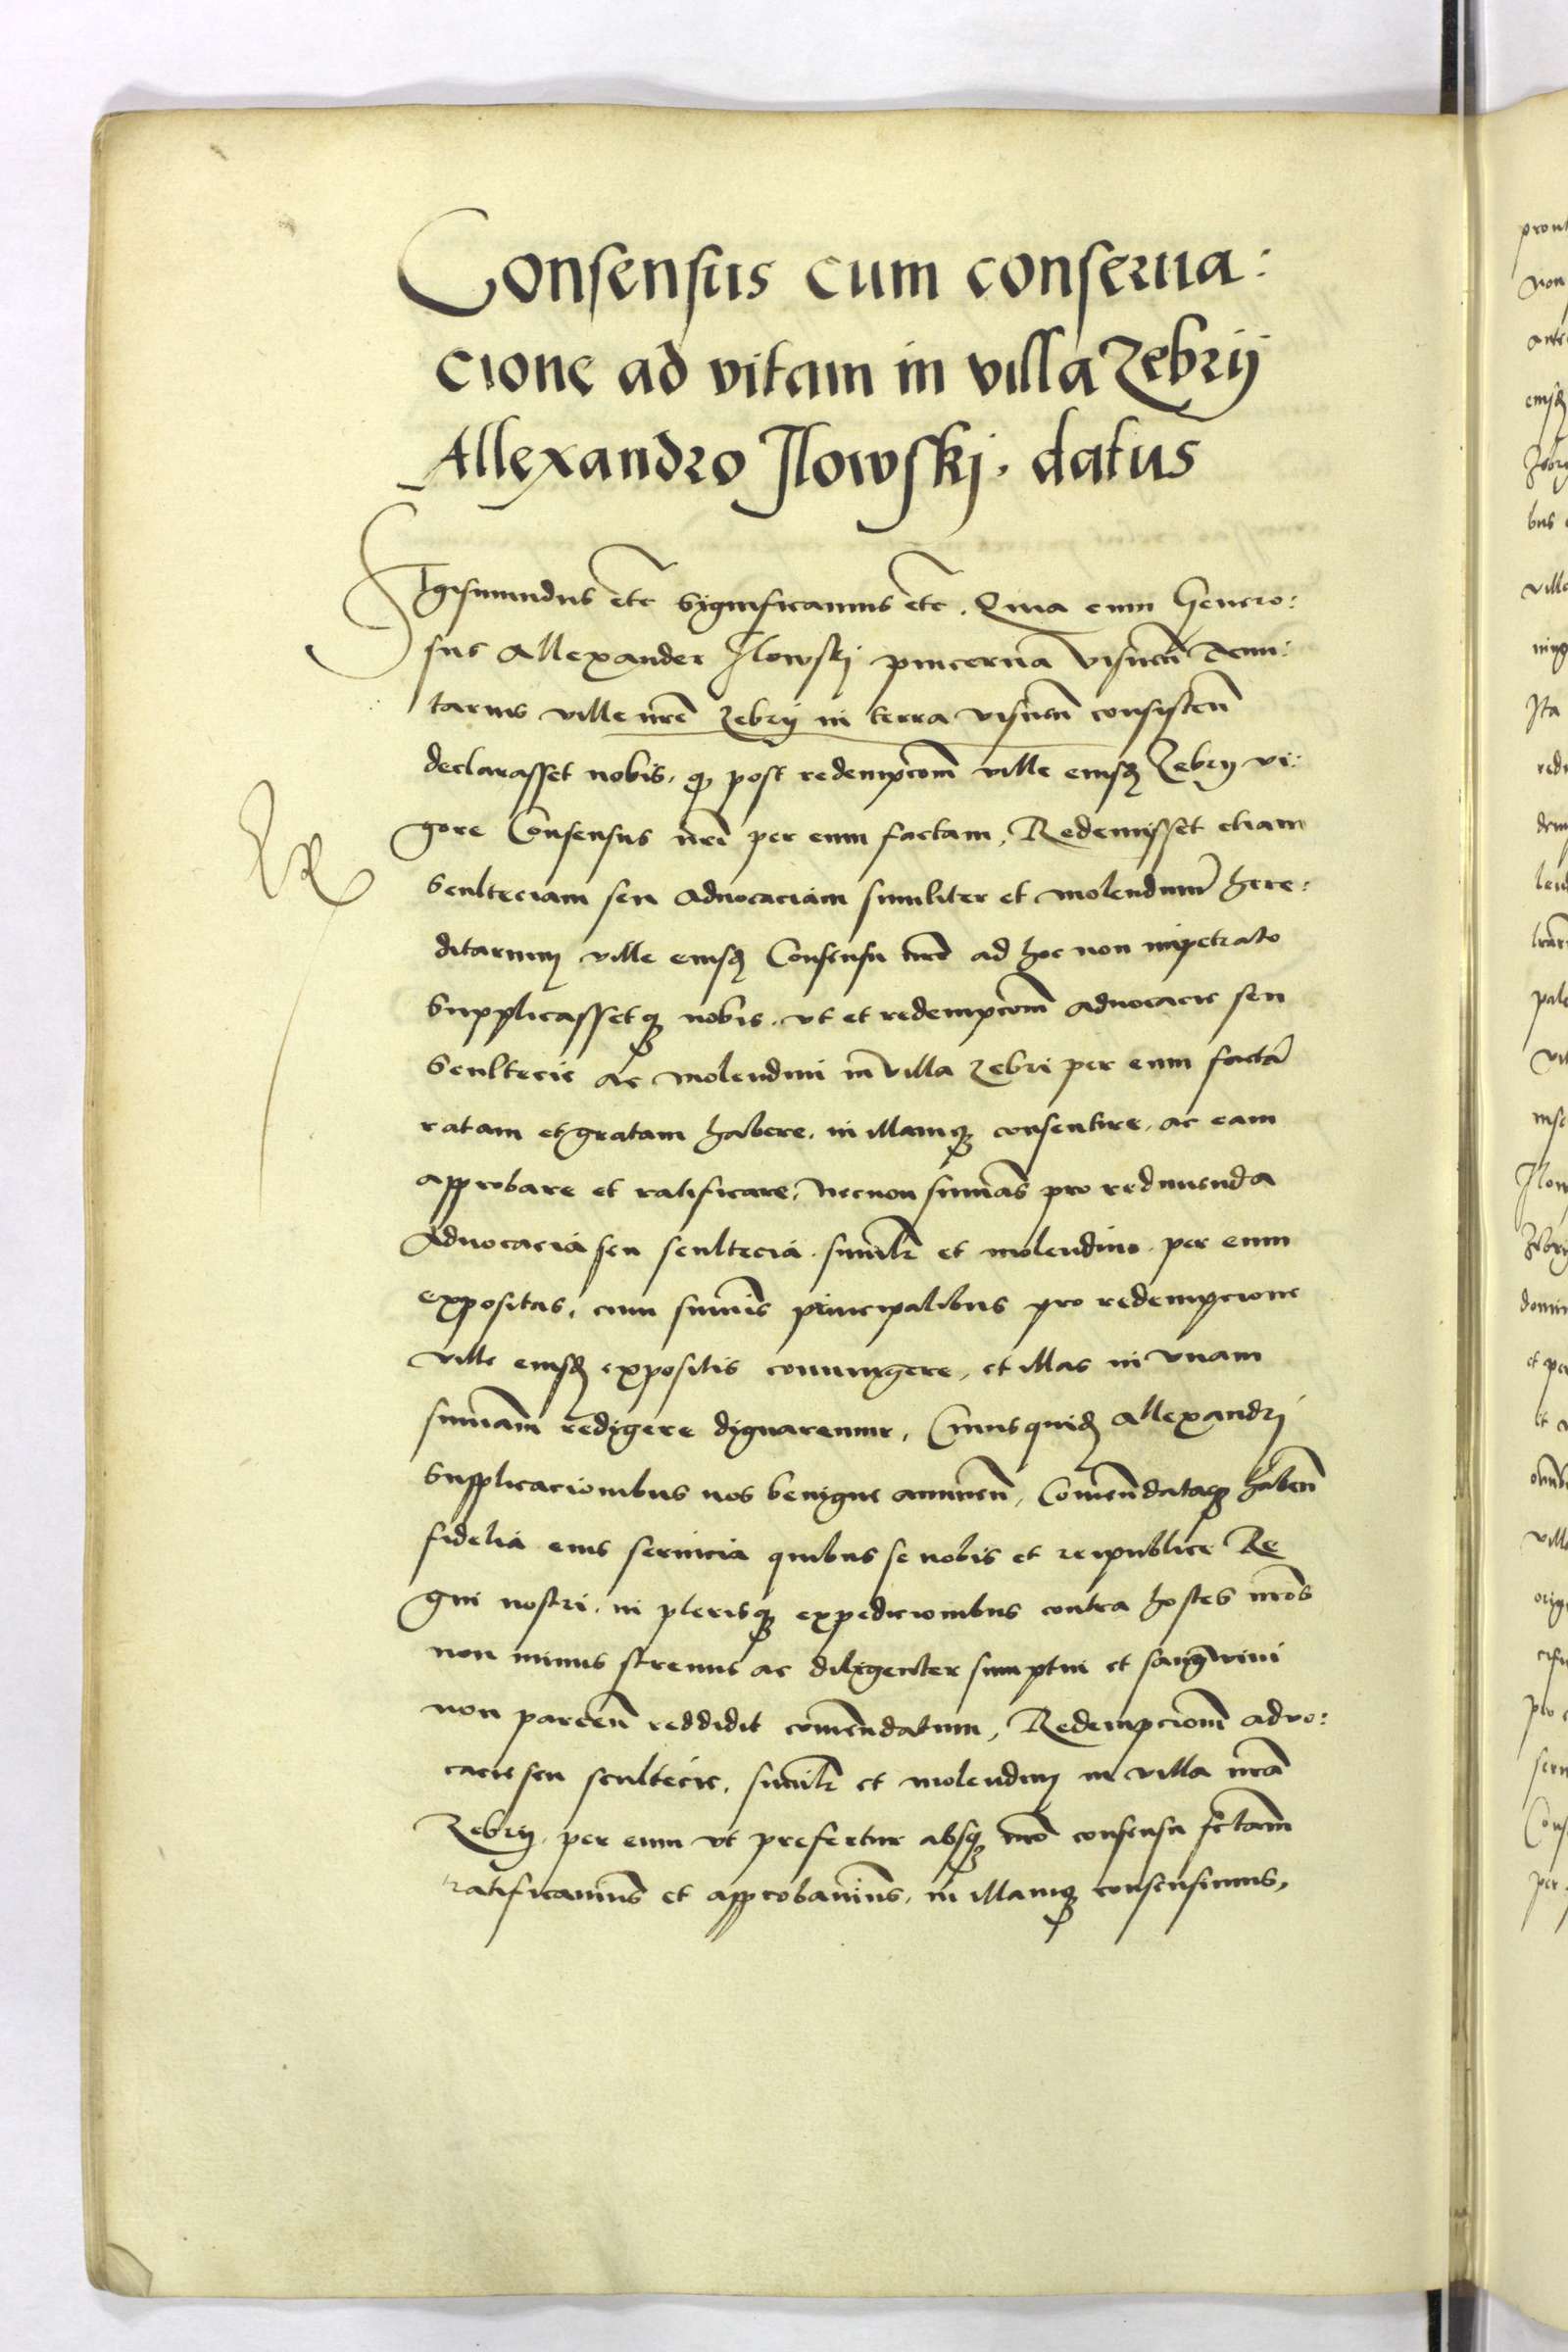 Consensus cum conserua:
cione ad vitam in villa Zebrij
Allexandro Jlowskj. datus
Sigismundus etc̄ Significamus etc̄. Quia cum Genero:
sus Allexander Jlowskj pincerna Visneñ Tenu:
tarius ville nr̄e Zebrij in terra visneñ consisteñ
declarasset nobis, ꝙ post redempcōm ville eiusdꝫ Zebrij vi:
gore Consensus nr̄i per eum factam, Redemisset etiam
Scultetiam seu aduocaciam similiter et molendinū here:
ditarium ville eiusdꝫ Consensu nrō ad hoc non impetrato
Supplicassetqꝫ nobis. vt et redempcōm aduocacie seu
Scultecie ac molendini in villa Zebri per eum factā
ratam et gratam habere, in illamqꝫ consentire, ac eam
approbare et ratificare, Necnon sum̄as pro redimenda
Aduocacia seu scultecia. simil̄r et molendino per eum
expositas, cum sum̄is principalibus pro redempcione
ville eiusdꝫ expositis coniungere, et illas in vnam
sum̄am redigere dignaremur, Cuiusquidꝫ Allexandri
Supplicacionibus nos benigne annueñ, Com̄endataqꝫ habeñ
fidelia eius seruicia quibus se nobis et reipublice Re
gni nostri. in plerisqꝫ expedicionibus contra hostes nrōs
non minus strenue ac diligenter sumptui et sangwini
non parceñ reddidit com̄endatum, Redempcionē advo:
cacie seu scultecie, simil̄r et molendinj in villa nrā
Zebrij. per eum vt prefertur absqꝫ nrō consensu fc̄tam
ratificauim̄us et approbauim̄us, in illamqꝫ consensimus,